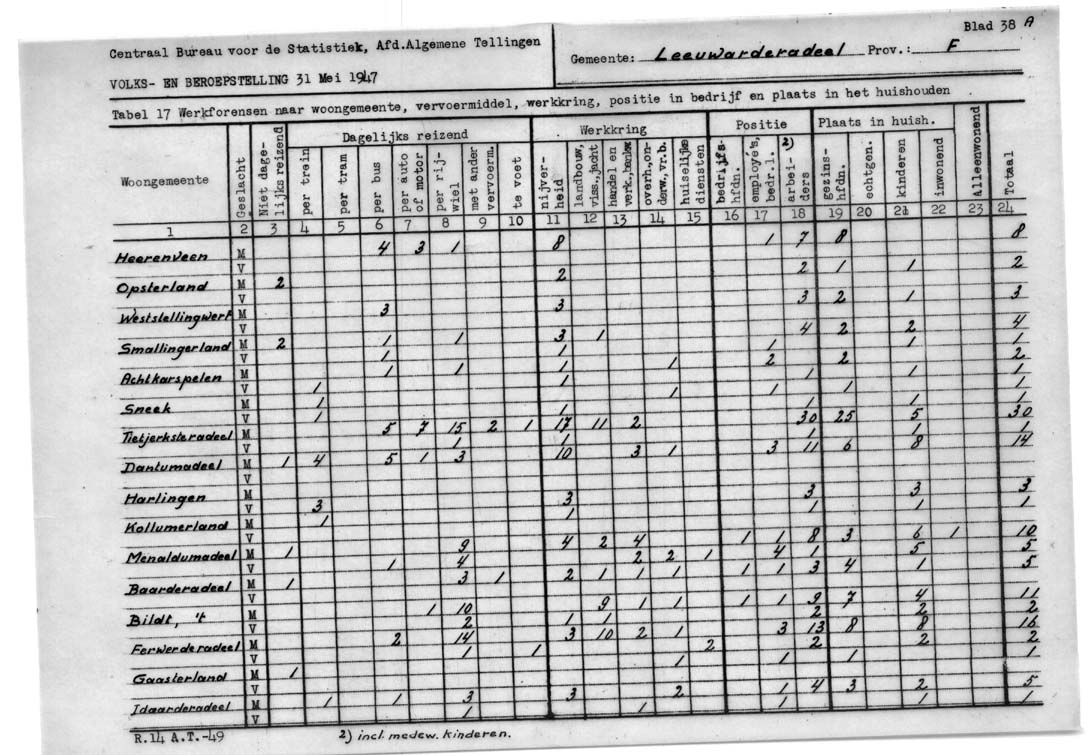 Blad 38 A
Centraal Bureau voor de Statistiek, Afd.Algemene Tellingen
Gemeente: Leeuwarderadeel Prov.: F
VOLKS- EN BEROEPSTELLING 31 Mei 1947
Tabel 17 Werkforensen naar woongemeente, vervoermiddel, werkkring, positie in bedrijf en plaats in het huishouden
Woongemeente
Geslacht
Niet dage-
lijks reizend
Dagelijks reizend
per trein
per tram
per bus
per auto
of motor
per rij-
wiel
met ander
vervoerm.
te voet
Werkkring
nijver-
heid
landbouw,
viss.,jacht
handel en
verk.,bankw
overh,on-
derw,vr.b.
huiselijke
diensten
Positie
bedrijfs-
hfdn.
employé's,
bedr.l.
2)
arbei-
ders
Plaats in huish.
gezins-
hfdn.
echtgen.
kinderen
inwonend
Alleenwonend
Totaal
1 2 3 4 5 6 7 8 9 10 11 12 13 14 15 16 17 18 19 20 21 22 23 24
Heerenveen M 4 3 1 8 1 7 8 8
V
Opsterland M 2 2 2 1 1 2
V
Weststellingwerf M 3 3 3 2 1 3
V
Smallingerland M 2 1 1 3 1 4 2 2 4
V 1 1 1 1 1
Achtkarspelen M 1 1 1 1 2 2 2
V 1 1 1 1 1
Sneek M 1 1 1 1 1
V 1 1 1 1 1
Tietjerksteradeel M 5 7 15 2 1 17 11 2 30 25 5 30
V 1 1 1 1 1
Dantumadeel M 1 4 5 1 3 10 3 1 3 11 6 8 14
V
Harlingen M
V 3 3 3 3 3
Kollumerland M 1 1 1 1 1
V
Menaldumadeel M 1 9 4 2 4 1 1 8 3 6 1 10
V 1 4 2 2 1 4 1 5 5
Baarderadeel M 1 3 1 2 1 1 1 1 1 3 4 1 5
V
Bildt, 't M 1 10 9 1 1 1 1 9 7 4 11
V 2 1 1 2 2 2
Ferwerderadeel M 2 14 3 10 2 1 3 13 8 8 16
V 1 1 2 2 2 2
Gaasterland M 1 1 1 1 1
V
Idaarderadeel M 1 1 3 3 2 1 4 3 2 5
V 1 1 1 1 1
R.14 A.T.-49
2) incl. medew. kinderen.